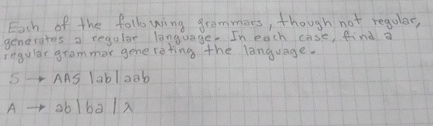 Each of the following grammars, though not regular,
generates a regular language. In each case, find a
regular grammar generating the language.
S → AAS | ab | aab
A → ab | ba | λ